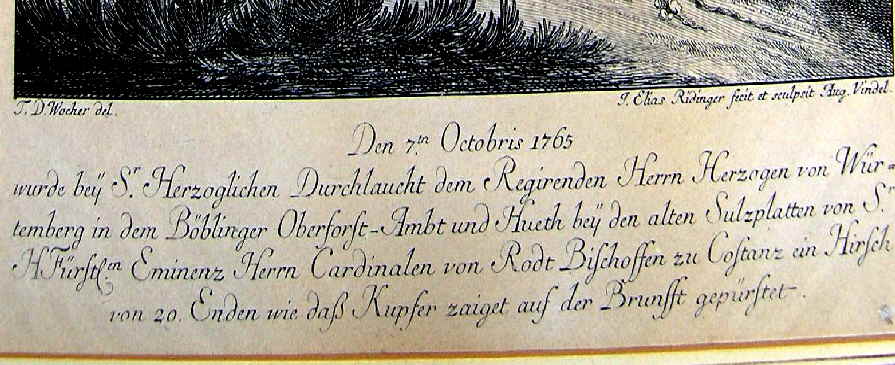 T. D. Wocher del.
J. Elias Ridinger fecit et sculpsit Aug. Vindel.
Den 7.tn Octobris 1765
wurde beÿ S.r Herzoglichen Durchlaucht dem Regirenden Herrn Herzogen von Wür=
temberg in dem Böblinger Oberforst-Ambt und Hueth beÿ den alten Sulzplatten von S.r
HFürstl.n Eminenz Herrn Cardinalen von Rodt Bischoffen zu Costanz ein Hirsch
von 20. Enden wie daß Kupfer zaiget auf der Brunfft gepürstet.